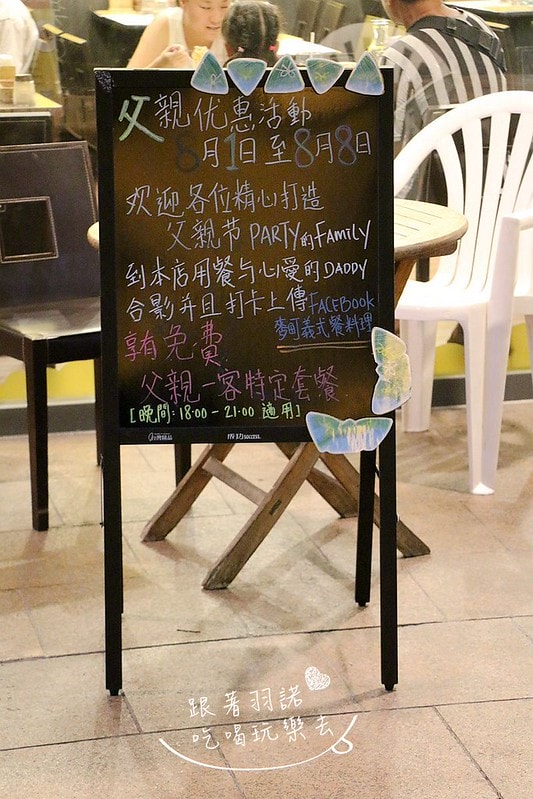 父親优惠活動
8月1日至8月8日
欢迎各位精心打造
父親节 PARTY的FAMILY
到本店用餐与心愛的DADDY
合影并且打卡上傳FACEBOOK
麥町義式餐料理
享有免費
父親一客特定套餐
[晚間:18:00-21:00 適用]
成功 success
跟著羽諾
吃喝玩樂去